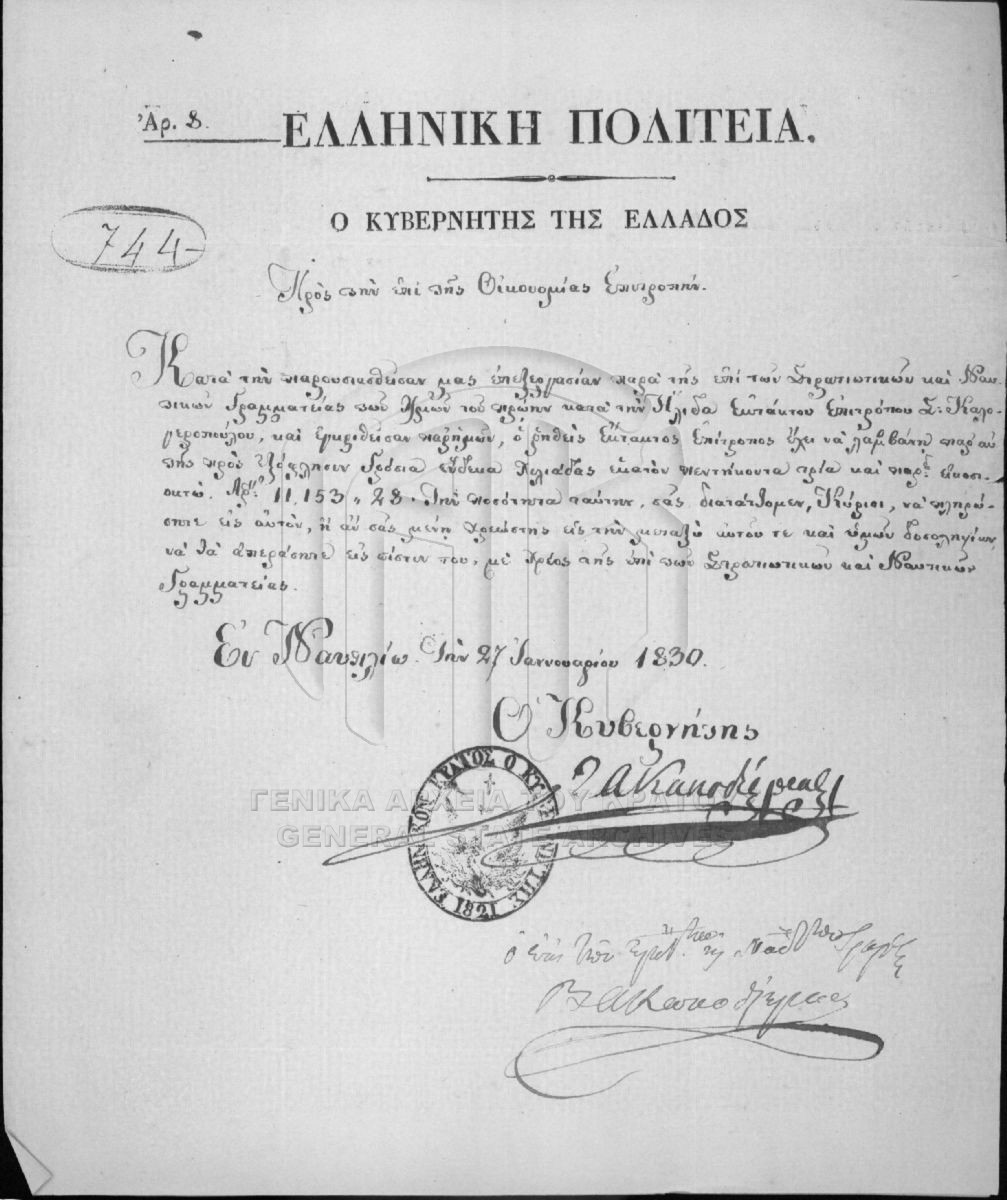 Ἀρ. 8. ΕΛΛΗΝΙΚΗ ΠΟΛΙΤΕΙΑ.
Ο ΚΥΒΕΡΝΗΤΗΣ ΤΗΣ ΕΛΛΑΔΟΣ
744
Πρὸς τὴν ἐπὶ τῆς Οἰκονομίας Ἐπιτροπήν.
Κατὰ τὴν παρουσιασθεῖσαν μας ἐπεξεργασίαν παρὰ τῆς ἐπὶ τῶν Στρατιωτικῶν καὶ Ναυ-
τικῶν Γραμματείας τῶν τοῦ πρώην κατὰ τὴν Ἤλιδα Ἐκτάκτου Ἐπιτρόπου Σ. Καλο-
γεροπούλου, καὶ ἐγκριθεῖσαν παρ' ἡμῶν, ὁ ῥηθεὶς Ἔκτακτος Ἐπίτροπος ἔχει νὰ λαμβάνῃ παρ' αὐ
τῆς πρὸς ἐξόφλησιν Γρόσια ἕνδεκα χιλιάδας ἑκατὸν πεντήκοντα τρία καὶ παρ. εἴκοσι-
οκτώ. Ἀρ. 11,153 „ 28. Τὴν ποσότητα ταύτην, σᾶς διατάττομεν, Κύριοι, νὰ πληρώ-
σητε εἰς αὐτὸν, ἢ ἂν σᾶς μένῃ χρεώστης εἰς τὴν μεταξὺ αὐτοῦ τε καὶ ὑμῶν δοσοληψίαν,
νὰ τὰ ἀπεράσητε εἰς πίστιν του, μὲ χρέος τῆς ἐπὶ τῶν Στρατιωτικῶν καὶ Ναυτικῶν
Γραμματείας.
Ἐν Ναυπλίῳ Τὴν 27 Ἰαννουαρίου 1830.
Ὁ Κυβερνήτης
Ι Α Καποδίστριας
ΕΛΛΗΝΙΚΟΝ ΚΡΑΤΟΣ Ο ΚΥΒΕΡΝΗΤΗΣ 1821
ΓΕΝΙΚΑ ΑΡΧΕΙΑ ΤΟΥ ΚΡΑΤΟΥΣ
GENERAL STATE ARCHIVES